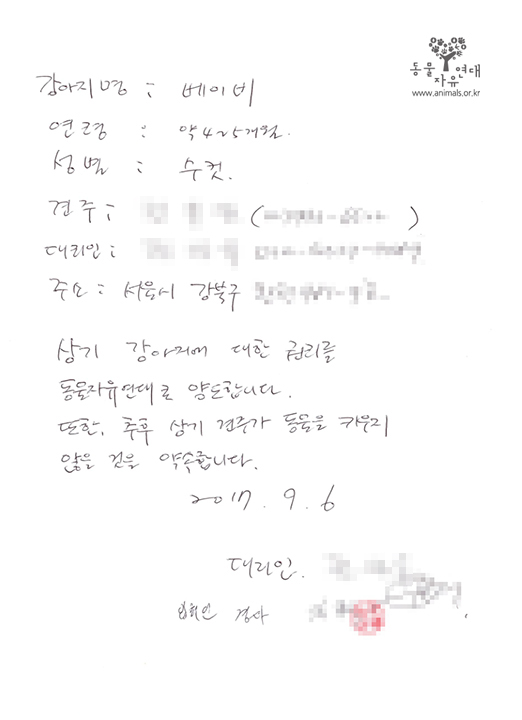 동물 연대
자유
www.animals.or.kr
강아지명 : 베이비
연령 : 약 4~5개월.
성별 : 수컷.
견주 : ( )
대리인 :
주소 : 서울시 강북구
상기 강아지에 대한 권리를
동물자유연대로 양도합니다.
또한, 추후 상기 견주가 동물을 키우지
않을 것을 약속합니다.
2017. 9. 6
대리인.
입회인 경사